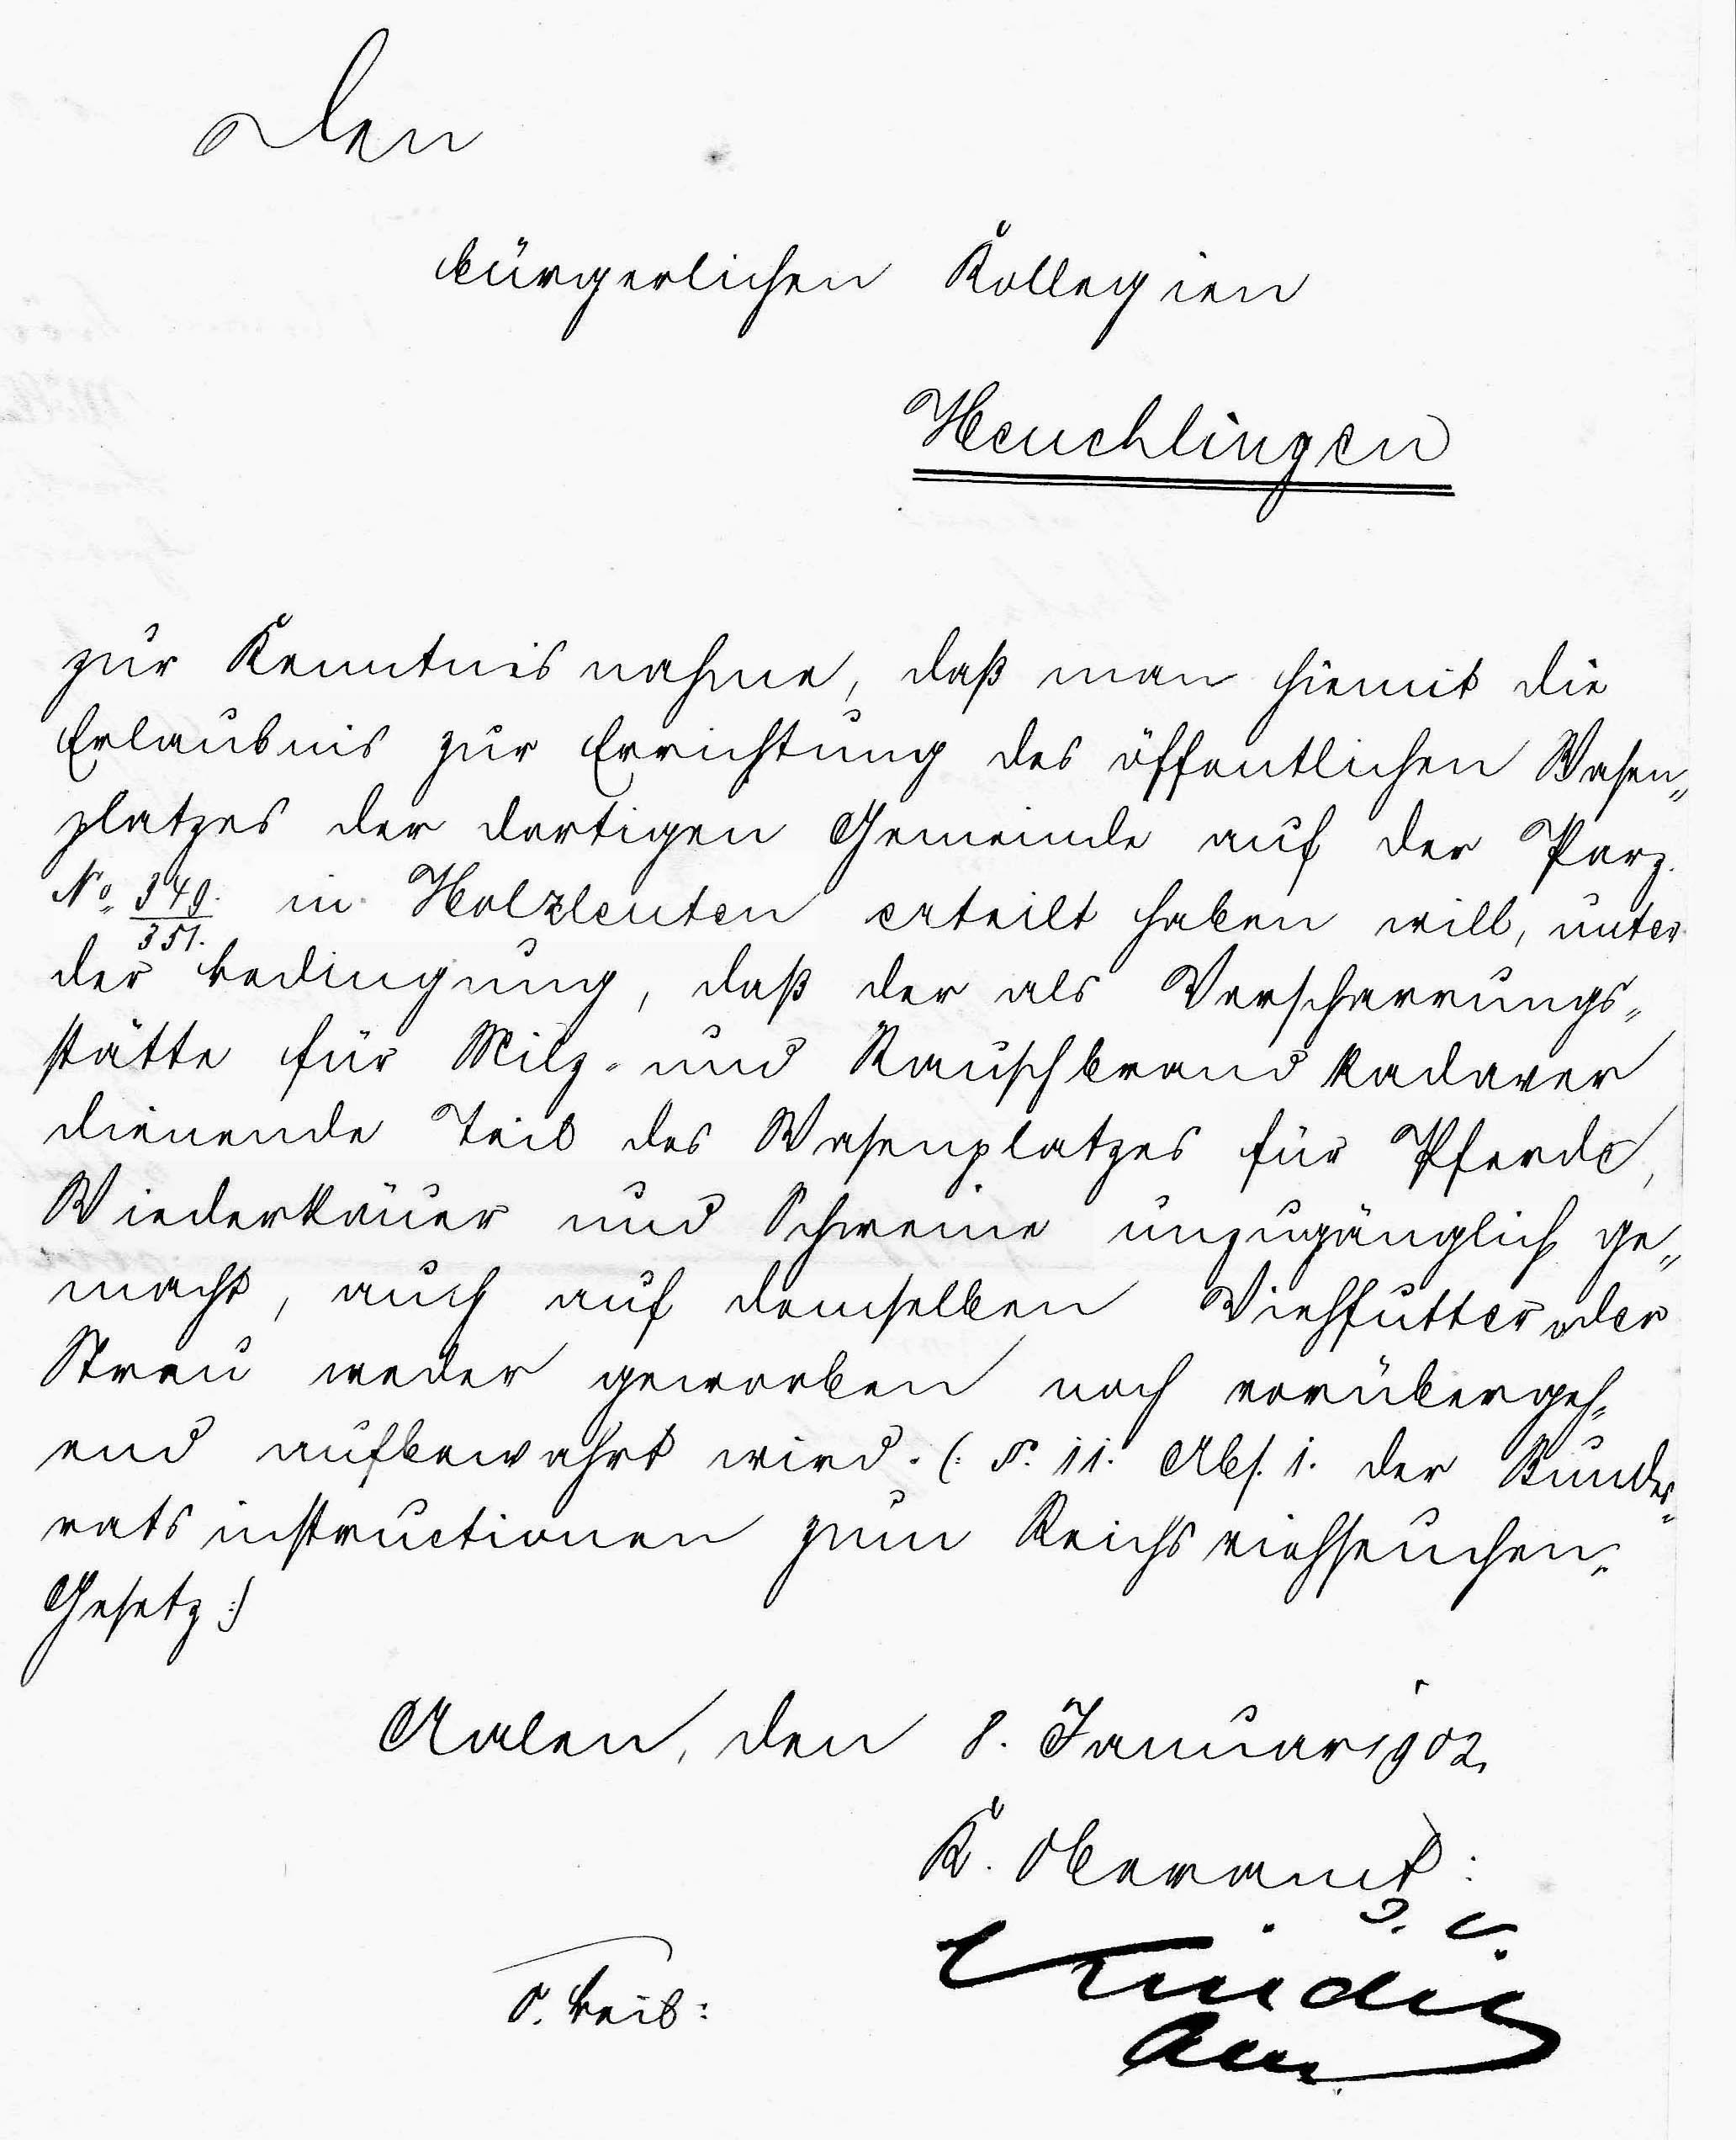 Den
bürgerlichen Kollegien
Heuchlingen
zur Kenntnisnahme, daß man hiemit die
Erlaubnis zur Errichtung des öffentlichen Wasen„
platzes der dortigen Gemeinde auf der Parz.
No. 349. / 351. in Holzleuten erteilt haben will, unter
der Bedingung, daß der als Verscharrungs„
stätte für Milz- und Rauschbrandkadaver
dienende Teil des Wasenplatzes für Pferde,
Wiederkäuer und Schweine unzugänglich ge„
macht, auch auf demselben Viehfutter oder
Streu weder geworben noch vorübergeh„
end aufbewahrt wird. (: §. 11. Abs. 1. der Bundes„
ratsinstructionen zum Reichsviehseuchen„
Gesetz :)
Aalen, den 8. Januar 1902.
K. Oberamt: